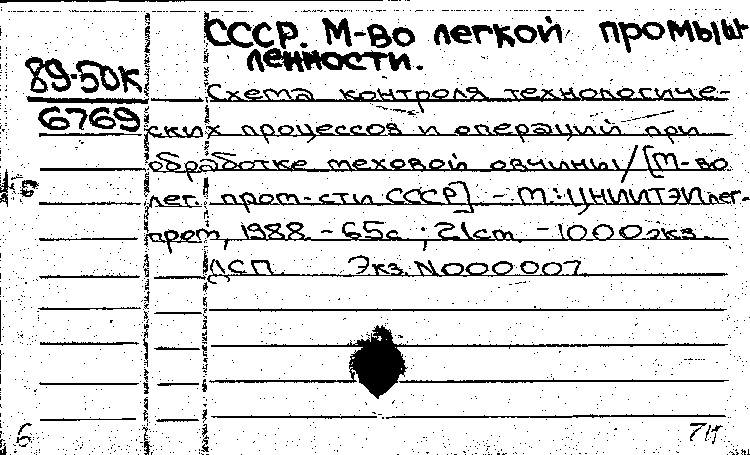 СССР. М-во легкой промыш-
ленности.
89-50к
6769
Схема контроля технологиче-
ских процессов и операций при
обработке меховой овчины/[М-во
лег. пром-сти СССР] – М.: ЦНИИТЭИлег-
пром, 1988. – 65с.; 21ст. – 1000экз.
ДСП. Экз. N000007.
6